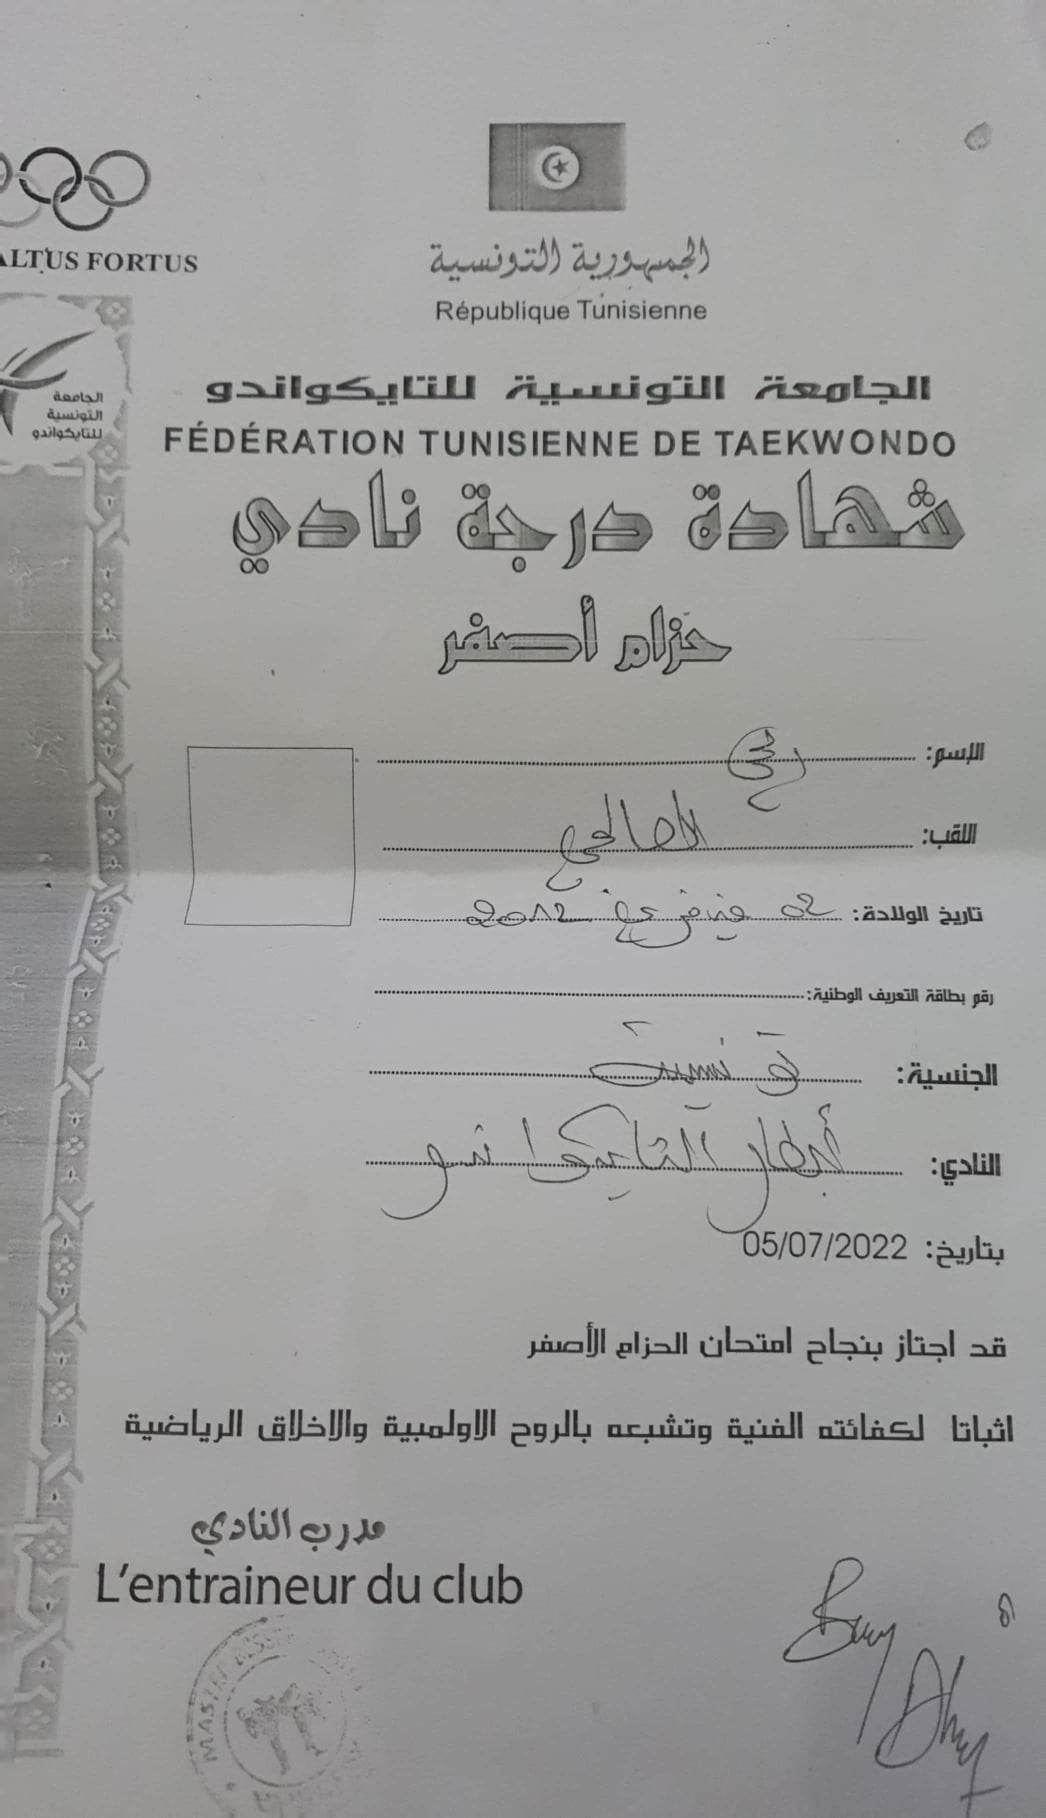 ALTUS FORTUS
الجمهورية التونسية
République Tunisienne
الجامعة
التونسية
للتايكواندو
الجامعة التونسية للتايكواندو
FÉDÉRATION TUNISIENNE DE TAEKWONDO
شهادة درجة نادي
حزام أصفر
الإسم:
اللقب: الصالحي
تاريخ الولادة: 02 فيفري 2012
رقم بطاقة التعريف الوطنية:
الجنسية: تونسية
النادي: أبطال التايكواندو
بتاريخ: 05/07/2022
قد اجتاز بنجاح امتحان الحزام الأصفر
اثباتا لكفائته الفنية وتشبعه بالروح الاولمبية والاخلاق الرياضية
مدرب النادي
L'entraineur du club